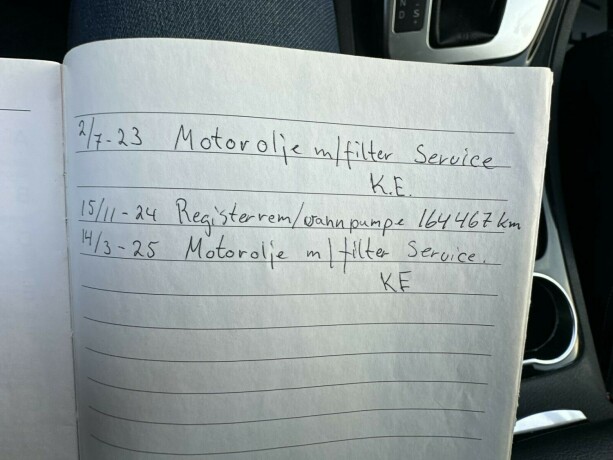 2/7-23 Motorolje m/filter Service
K.E.
15/11-24 Registerrem/vannpumpe 164467 km
14/3-25 Motorolje m/filter Service.
KE